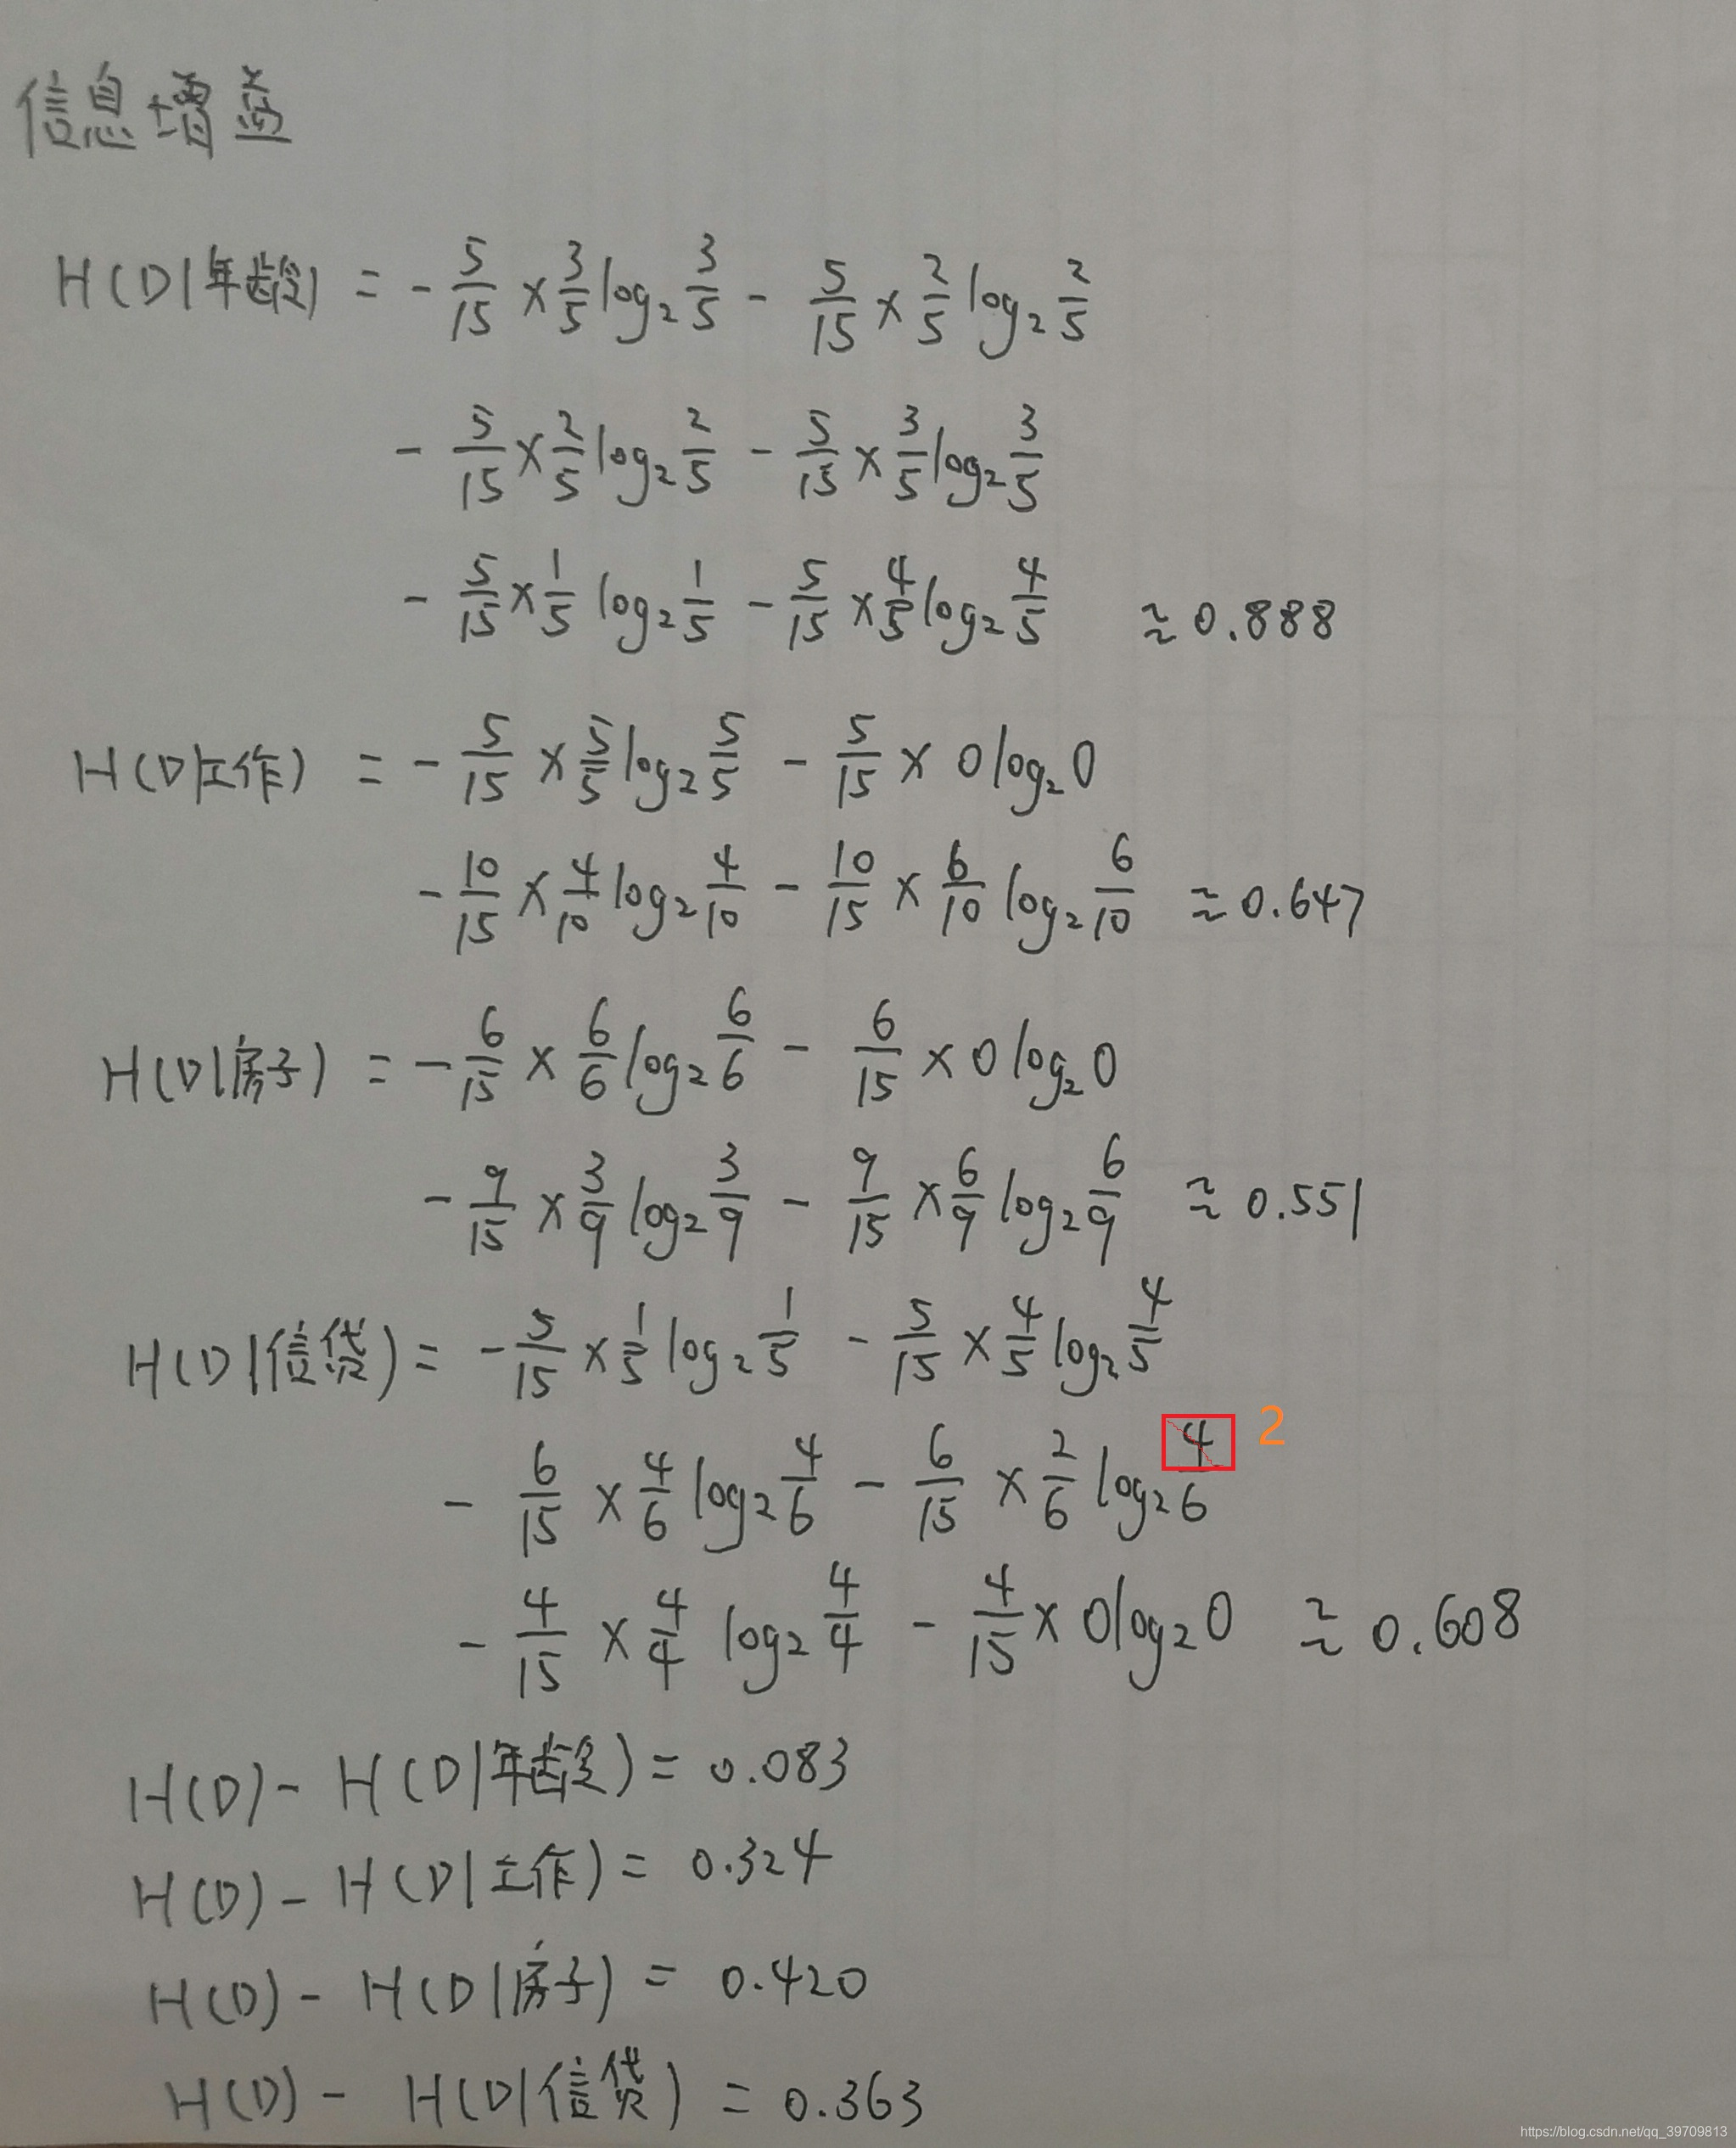 信息增益
H(D|年龄) = - 5/15 × 3/5 log₂ 3/5 - 5/15 × 2/5 log₂ 2/5
- 5/15 × 2/5 log₂ 2/5 - 5/15 × 3/5 log₂ 3/5
- 5/15 × 1/5 log₂ 1/5 - 5/15 × 4/5 log₂ 4/5 ≈ 0.888
H(D|工作) = - 5/15 × 5/5 log₂ 5/5 - 5/15 × 0 log₂ 0
- 10/15 × 4/10 log₂ 4/10 - 10/15 × 6/10 log₂ 6/10 ≈ 0.647
H(D|房子) = - 6/15 × 6/6 log₂ 6/6 - 6/15 × 0 log₂ 0
- 9/15 × 3/9 log₂ 3/9 - 9/15 × 6/9 log₂ 6/9 ≈ 0.551
H(D|信贷) = - 5/15 × 1/5 log₂ 1/5 - 5/15 × 4/5 log₂ 4/5
- 6/15 × 4/6 log₂ 4/6 - 6/15 × 2/6 log₂ 4/6 2
- 4/15 × 4/4 log₂ 4/4 - 4/15 × 0 log₂ 0 ≈ 0.608
H(D) - H(D|年龄) = 0.083
H(D) - H(D|工作) = 0.324
H(D) - H(D|房子) = 0.420
H(D) - H(D|信贷) = 0.363
https://blog.csdn.net/qq_39709813